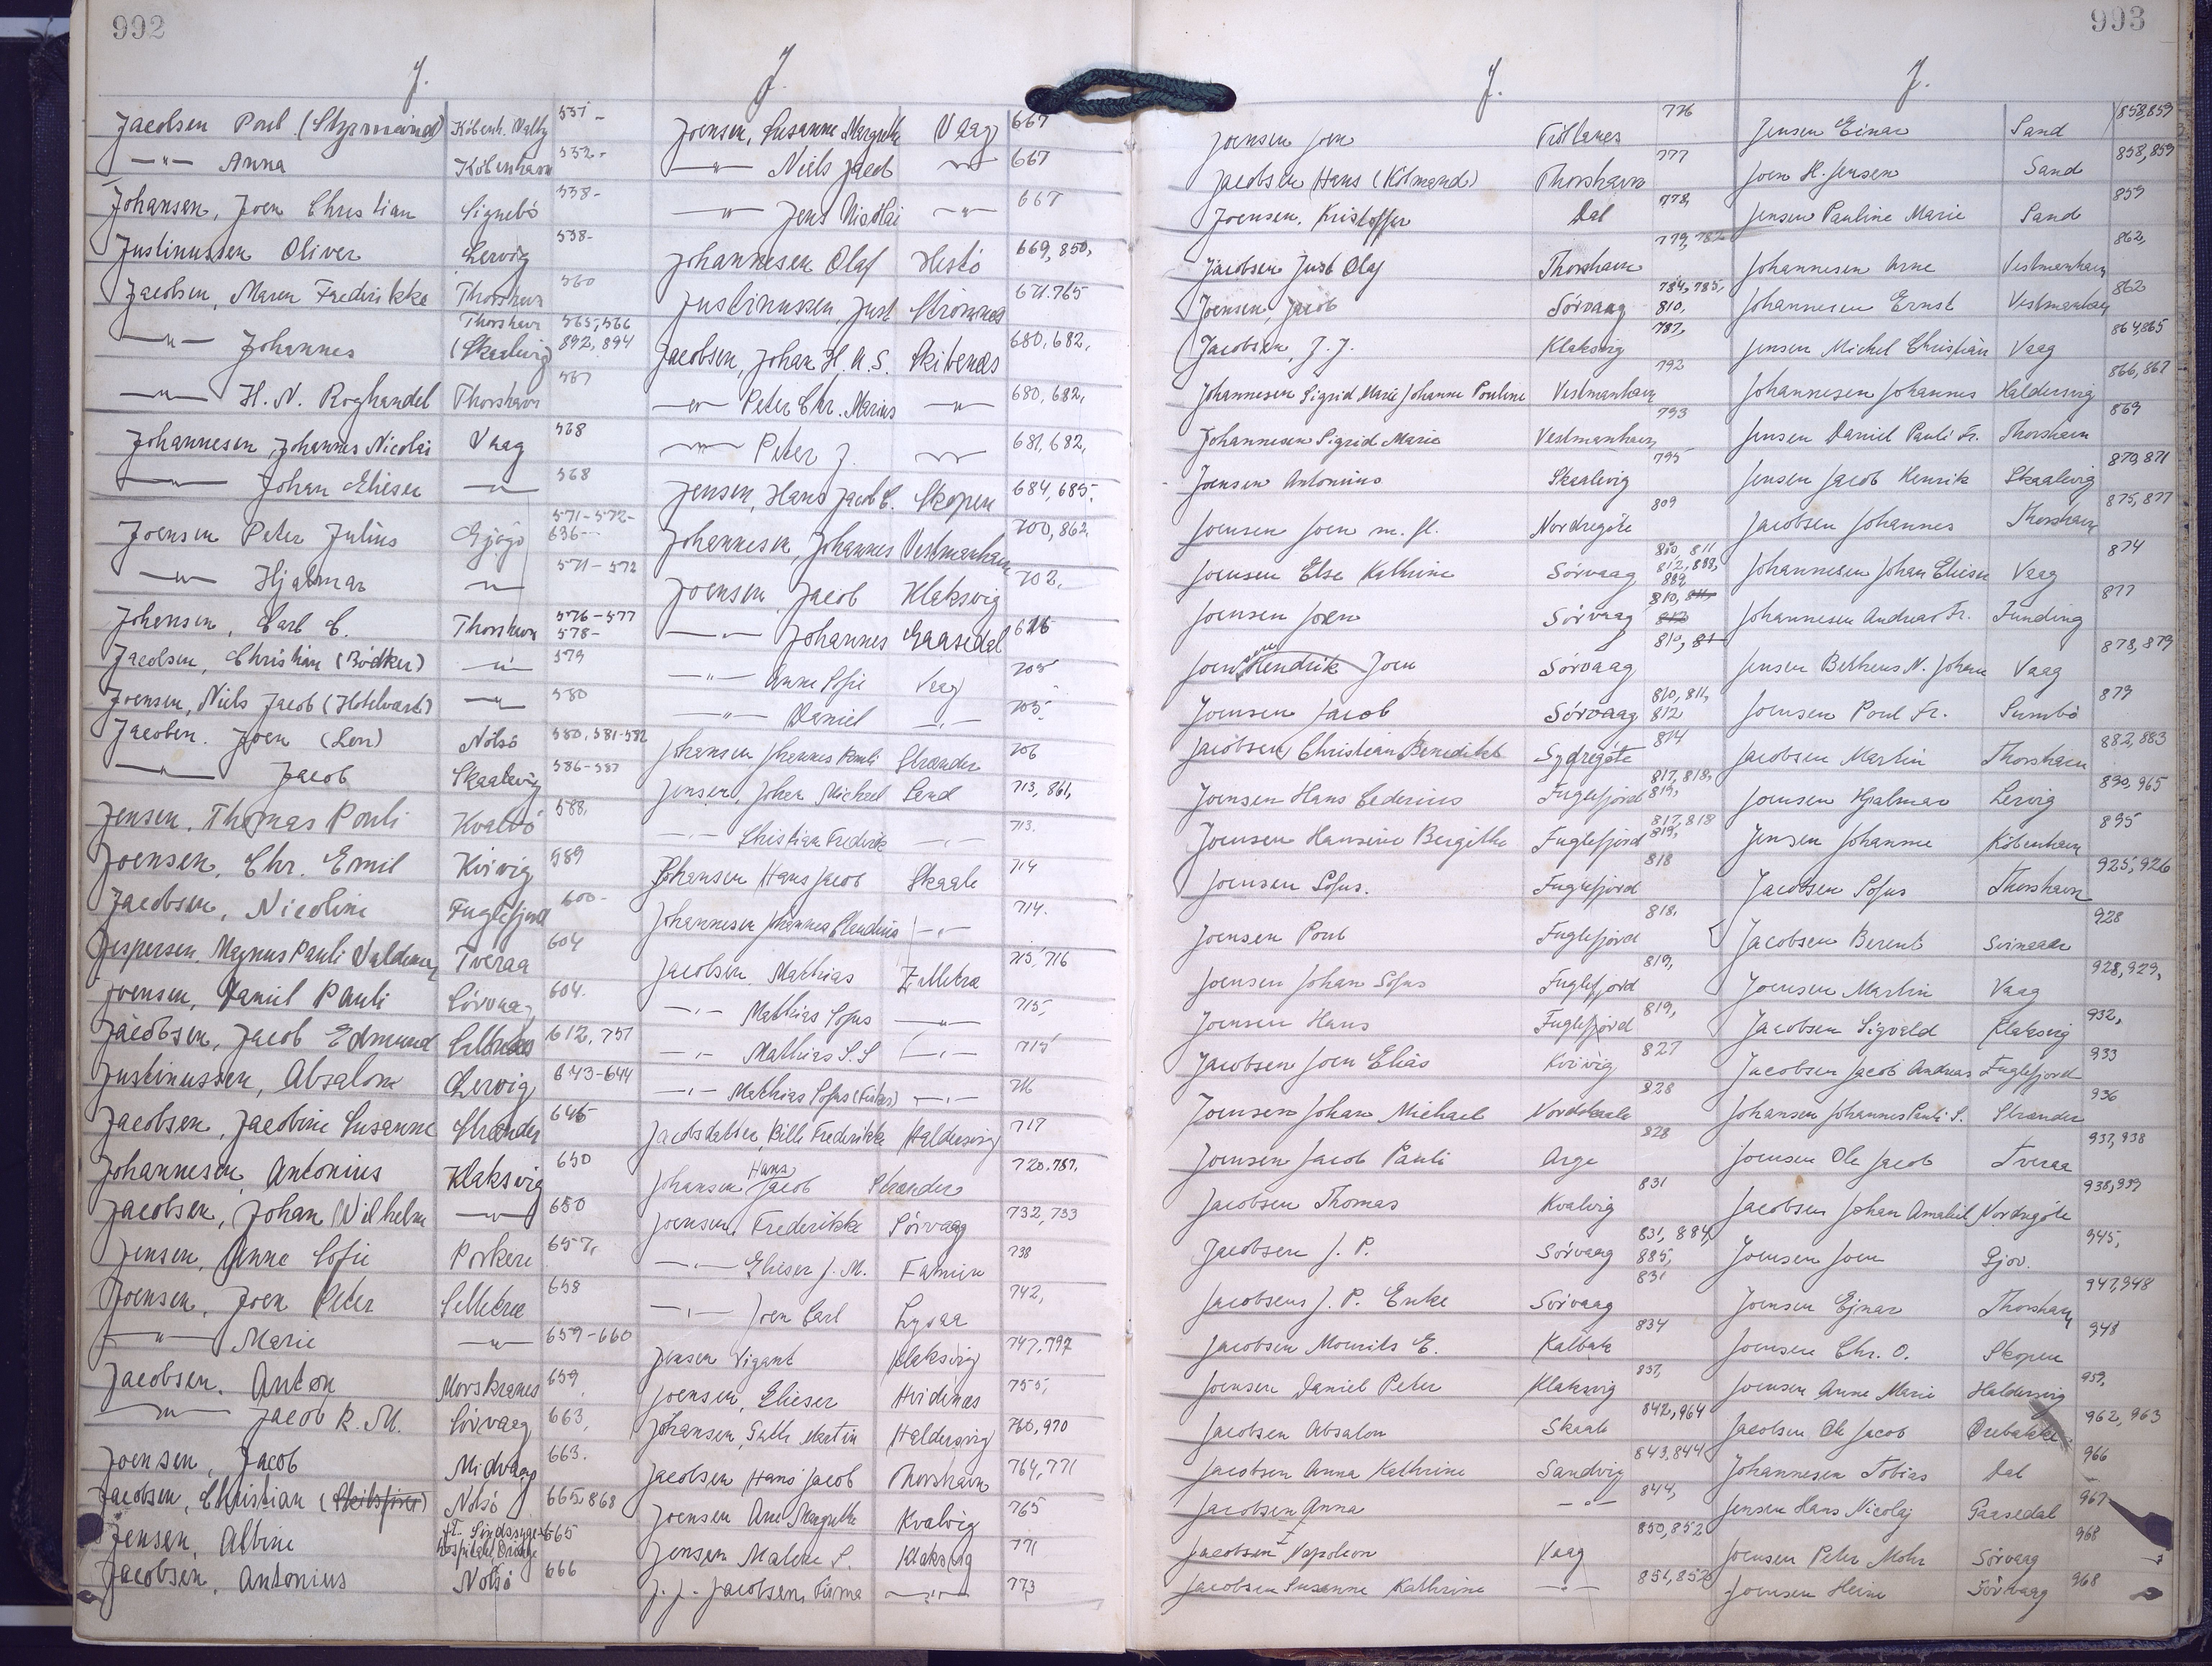 992
J.
Jacobsen Poul (Styrmand) Københ. Valby 551-
—"— Anna København 552-
Johansen, Joen Christian Signebø 558-
Justinussen Oliver Lervig 558-
Jacobsen, Maren Fredrikke Thorshavn 560
—"— Johannes Thorshavn (Skaalevig) 565,566 892,894
—"— H. N. Boghandel Thorshavn 567
Johannesen, Johannes Nicolai Vaag 568
—"— Johan Elieser —"— 568
Joensen Peter Julius Gjógv 571-572- 636-
—"— Hjalmar —"— 571-572
Johansen, Carl C. Thorshavn 576-577 578-
Jacobsen, Christian (Bödker) —"— 579
Joensen, Niels Jacob (Hotelvært) —"— 580
Jacobsen. Joen (Lon) Nolsö 580,581-582
—"— Jacob Skaalevig 586-587
Jensen, Thomas Pouli Kvalvö 588,
Joensen, Chr. Emil Kvivig 589
Jacobsen, Nicoline Fuglefjord 600-
Jespersen, Magnus Pauli Valdemar Tveraa 604
Joensen, Daniel Pauli Sörvaag 604.
Jacobsen, Jacob Edmund 612, 757
Justinussen, Absalon Lervig 643-644
Jacobsen, Jacobine Susanne Strænder 645
Johannesen, Antonius Klaksvig 650
Jacobsen, Johan Wilhelm —"— 650
Jensen, Anne Sofie Porkere 657,
Joensen, Joen Peter Selletræ 658
—"— Marie —"— 659-660
Jacobsen. Anton Morskranes 659
—"— Jacob K. M. Sörvaag 663
Joensen, Jacob Midvaag 663.
Jacobsen, Christian (Skibsfører) Nolsö 665,868
Jensen, Albine ft. Sindssygehospital 665
Jacobsen, Antonius Nolsö 666
J.
Joensen, Susanne Margrethe Vaag 667
—"— Niels Jacob —"— 667
—"— Jens Nicolai —"— 667
Johannesen Olaf Hestö 669, 850,
Justinussen, Just Strömnæs 671.765
Jacobsen, Johan H. A. S. Skibenæs 680,682,
—"— Peter Chr. Marius —"— 680,682,
—"— Peter J. —"— 681,682,
Jensen, Hans Jacob C. Skopen 684,685.
Johannesen, Johannes Vestmanhavn 700,862
Joensen Jacob Klaksvig 702.
—"— Johannes Gaasedal 626
—"— Anne Sofie Vaag 705
—"— Daniel —"— 705
Johansen Johannes Pauli Strænder 706
Jensen, Johan Michael Sand 713, 861,
—"— Christian Frederik —"— 713.
Johansen Hans Jacob Skaale 714
Johannesen Johannes Claudius —"— 714.
Jacobsen. Mathias Zelletræ 715,716
—"— Mathias Sofus —"— 715,
—"— Mathias S. S —"— 715
—"— Mathias Sofus —"— 716
Jacobsdatter, Bille Frederikke Haldersvig 717
Johansen Hans Jacob Strænder 720.787.
Joensen, Frederikke Sörvaag 732,733
—"— Elieser J. M. Famien 738
—"— Joen Carl Lysaa 742,
Jensen Vigant Klaksvig 747,797
Joensen, Elieser Hvidenæs 755,
Johansen, Martin Haldersvig 760,970
Jacobsen Hans Jacob Thorshavn 764,771
Joensen Ane Margrethe Kvalvig 765
Jensen Malene S. Klaksvig 771
J. J. Jacobsen, Firma —"— 773
993
J.
Joensen Joen Tröllanes 776
Jacobsen Hans (Kölmand) Thorshavn 777
Joensen. Kristoffer Dal 778,
Jacobsen Just Olaf Thorshavn 779, 782
Joensen, Jacob Sörvaag 784,785, 810,
Jacobsen, J. J. Klaksvig 787,
Johannesen Sigrid Marie Johanne Pouline Vestmanhavn 792
Johannesen Sigrid Marie Vestmanhavn 793
Joensen Antonius Skaalevig 795
Joensen Joen m. fl. Nordregöte 809
Joensen Else Kathrine Sörvaag 810, 811 812, 888, 889
Joensen Joen Sörvaag 810, 811, 812
Joensen Hendrik Joen Sörvaag 810, 81
Joensen Jacob Sörvaag 810, 811, 812
Jacobsen Christian Benedikt Sydregöte 814
Joensen Hans Cederius Fuglefjord 817,818, 819,
Joensen Hansine Bergithe Fuglefjord 817,818 819,
Joensen Sofus. Fuglefjord 818
Joensen Poul Fuglefjord 818.
Joensen Johan Sofus Fuglefjord 819,
Joensen Hans Fuglefjord 819,
Jacobsen Joen Elias Kvivig 827
Joensen Johan Michael Nordskaale 828
Joensen Jacob Pauli Arge 828
Jacobsen Thomas Kvalvig 831
Jacobsen J. P. Sörvaag 831, 884, 885,
Jacobsens J. P. Enke Sörvaag 831
Jacobsen Mourits E. Kalbak 834
Joensen Daniel Peter Klaksvig 837,
Jacobsen Absalon Skaale 842,964
Jacobsen Anna Kathrine Sandvig 843,844
Jacobsen Anna —"— 844,
Jacobsen Napoleon Vaag 850,852
Jacobsen Susanne Kathrine —"— 851,852
J.
Jensen Einar Sand 858,859
Joen H. Jensen Sand 858,859
Jensen Pauline Marie Sand 859
Johannesen Arne Vestmanhavn 862,
Johannesen Ernst Vestmanhavn 862
Jensen Michel Christian Vaag 864,865
Johannesen Johannes Haldersvig 866,867
Jensen Daniel Pauli Fr. Thorshavn 869
Jensen Jacob Henrik Skaalevig 870,871
Jacobsen Johannes Thorshavn 875,877
Johannesen Johan Elieser Vaag 874
Johannesen Andreas Fr. Funding 877
Jensen Betheus N. Johan Vaag 878,879
Joensen Poul Fr. Sumbö 879
Jacobsen Martin Thorshavn 882,883
Joensen Hjalmar Lervig 890,965
Jensen Johanne København 895
Jacobsen Sofus Thorshavn 925,926
Jacobsen Berent Svinaair 928
Joensen Martin Vaag 928,929,
Jacobsen Sigvald Klaksvig 932,
Jacobsen Jacob Andreas Fuglefjord 933
Johansen Johannes Pauli S. Strænder 936
Joensen Ole Jacob Tveraa 937,938
Jacobsen Johan Amaliel Nordregöte 938,939
Joensen Joen Gjov. 945,
Joensen Ejnar Thorshavn 947,948
Joensen Chr. O. Skopen 948
Joensen Anne Marie Haldersvig 959,
Jacobsen Ole Jacob 962, 963
Johannesen Tobias Dal 966
Jensen Hans Nicolaj Gaasedal 967
Joensen Peter Mohr Sörvaag 968
Joensen Heine Sörvaag 968